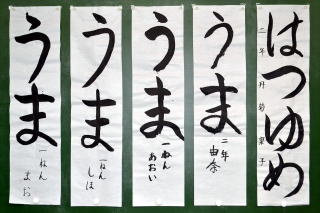 はつゆめ
二年 丹菊
うま
二年
由奈
うま
一ねん
あおい
うま
一ねん
しほ
うま
一ねん
まお